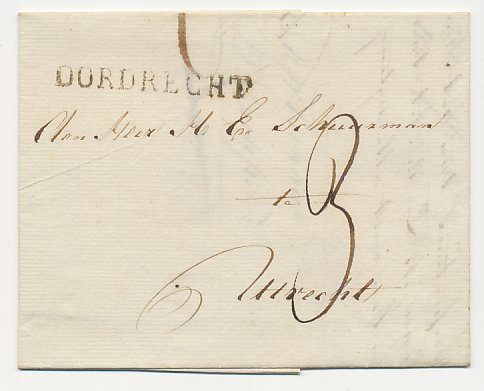 DORDRECHT
Den Heer H E Schuurman
te
Utrecht
3